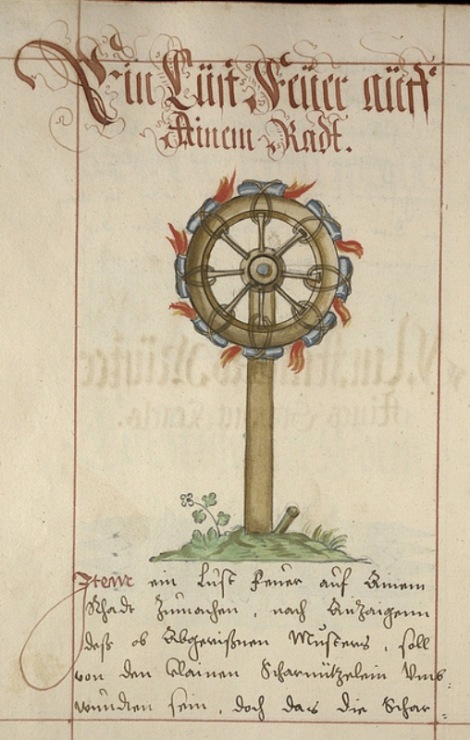 Ein Lust Feuer auff
Ainem Radt.
Item ein Lust Feuer auf Ainem
Rhadt Zumachen, nach Anzaigenn
deß ob Abgerißnen Musters, soll
von den Clainen Scharmützelein Umb:
wunden sein, doch das die Schar: